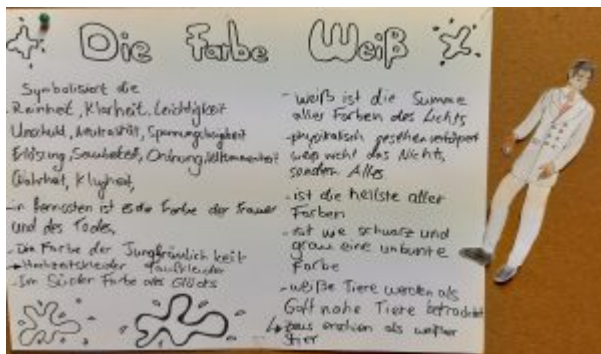 Die Farbe Weiß
Symbolisiert die
- Reinheit, Klarheit, Leichtigkeit
Unschuld, Neutralität,
Erlösung, Sauberkeit, Ordnung, Vollkommenheit
Wahrheit, Klugheit,
- in fernosten ist es die Farbe der Trauer
und des Todes,
- Die Farbe der Jungfräulichkeit
→ Hochzeitskleider Taufkleider
- Im Farbe des Glücks
- weiß ist die Summe
aller Farben des Lichts
- physikalisch gesehen verkörpert
weiß nicht das Nichts,
sondern Alles
- ist die hellste aller
Farben
- ist wie schwarz und
grau eine unbunte
Farbe
- weiße Tiere werden als
Gott nahe Tiere betrachtet
↳ Zeus erschien als weißer
Stier